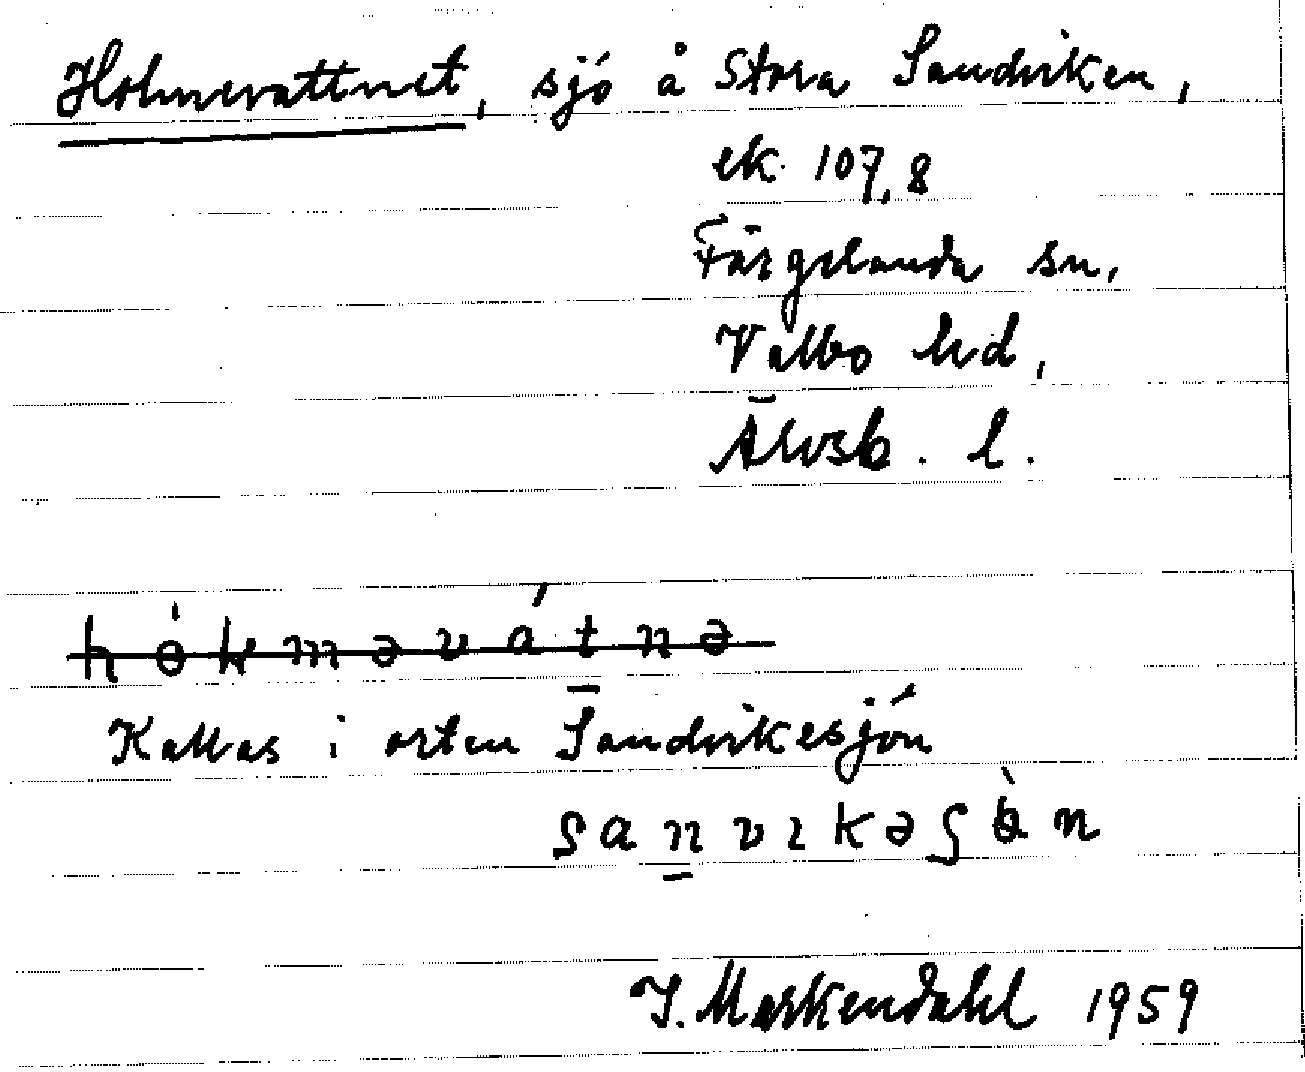 Holmevattnet, sjö å Stora Sandviken,
ek 107,8
Färgelanda sn,
Valbo hd,
Älvsb. l.
Kallas i orten Sandvikesjön
I. Markendahl 1959